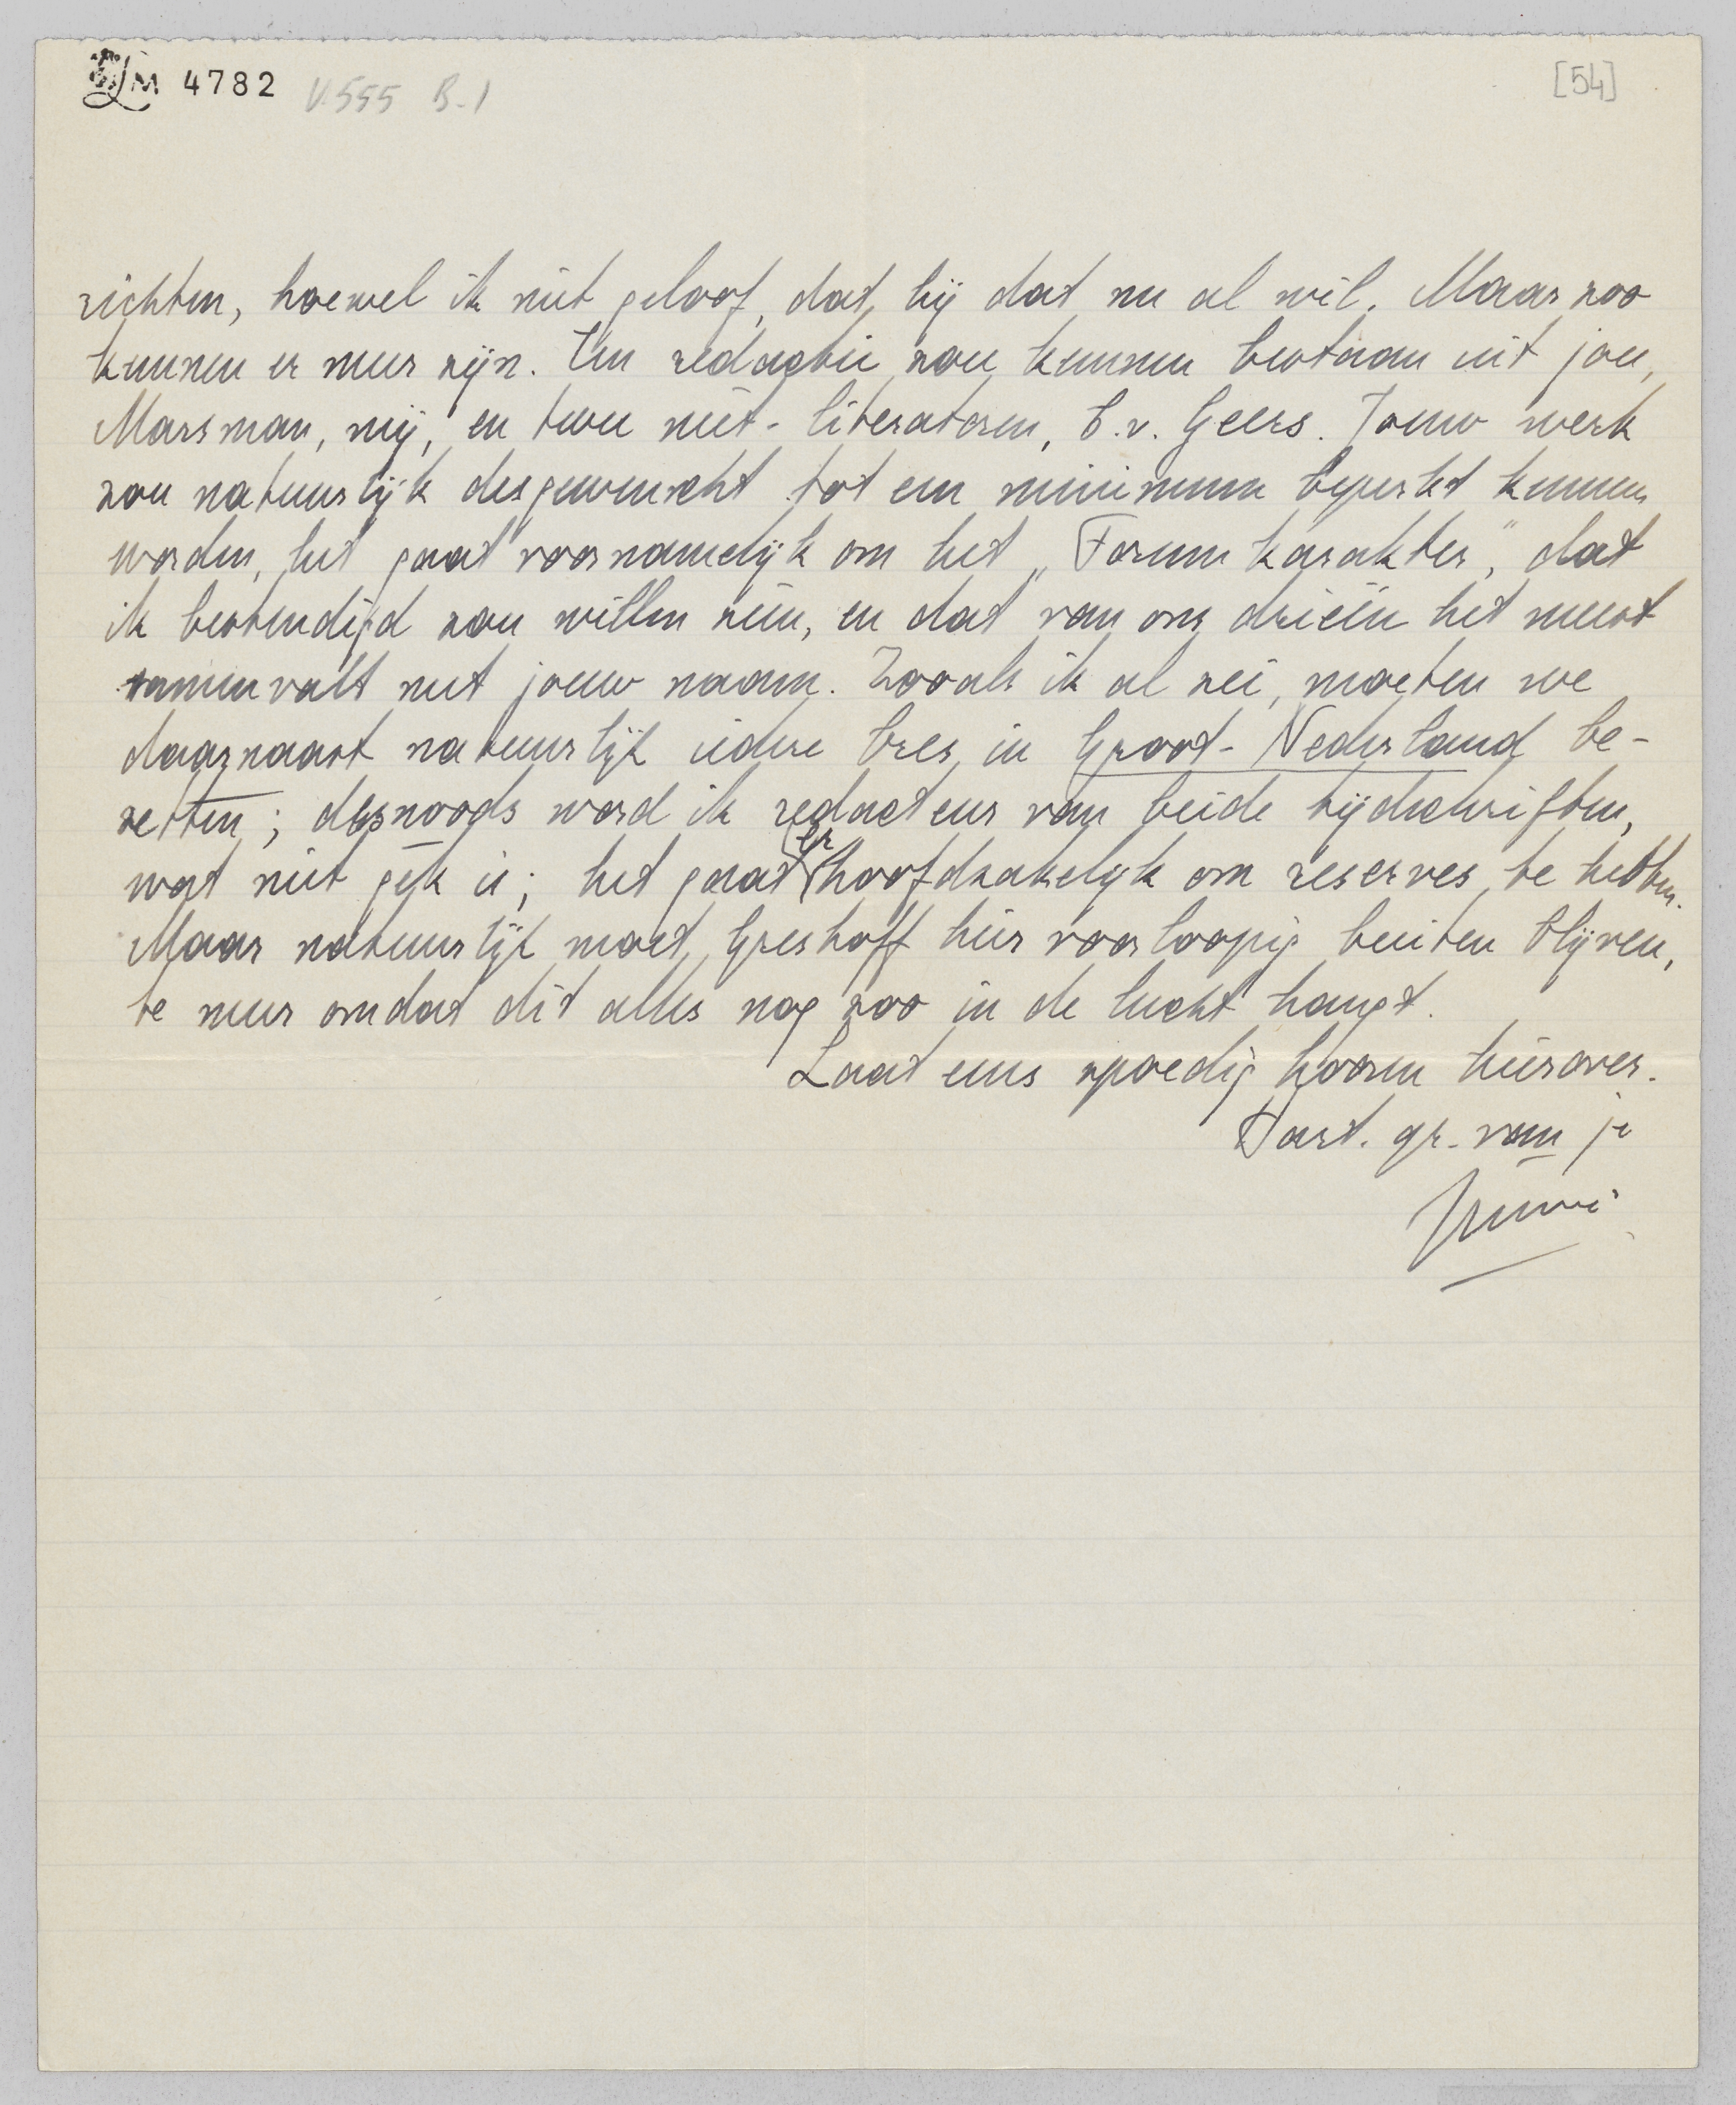 LM 4782 V.555 B-1 [54]
richten, hoewel ik niet geloof, dat hij dat nu al wil. Maar zoo
kunnen er meer zijn. Een redactie zou kunnen bestaan uit jou,
Marsman, mij, en twee niet-literatoren, b.v. Geers. Jouw werk
zou natuurlijk desgewenscht tot een minimum beperkt kunnen
worden, het gaat voornamelijk om het „Forum karakter", dat
ik bestendigd zou willen zien, en dat van ons drieën het meest
samenvalt met jouw naam. Zooals ik al zei, moeten we
daarnaast natuurlijk iedere bres in Groot-Nederland be-
zetten; desnoods word ik redacteur van beide tijdschriften,
wat niet gek is; het gaat er hoofdzakelijk om reserves te hebben.
Maar natuurlijk moet Greshoff hier voorloopig buiten blijven,
te meer omdat dit alles nog zoo in de lucht hangt.
Laat eens spoedig hooren hierover.
Hart. gr. van je